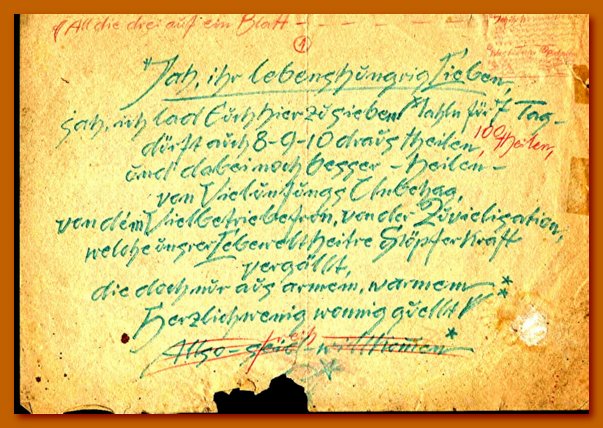 All die drei auf ein Blatt
1
"Jah, ihr lebenshungrig Lieben,
jah, ich lad Euch hier zu sieben Mahln für 7 Tag-
dürft auch 8-9-10 draus theilen, 100 theilen,
und dabei noch besser - heilen -
von Vieluntungs Unbehag,
von dem Vielbetriebefron, von der Züvielisation,
welche unsrer Lebewelt heitre Slöpferkraft
vergällt,
die doch nur aus armem, warmem
Herzlichwenig wonnig quellt!"
Allso -